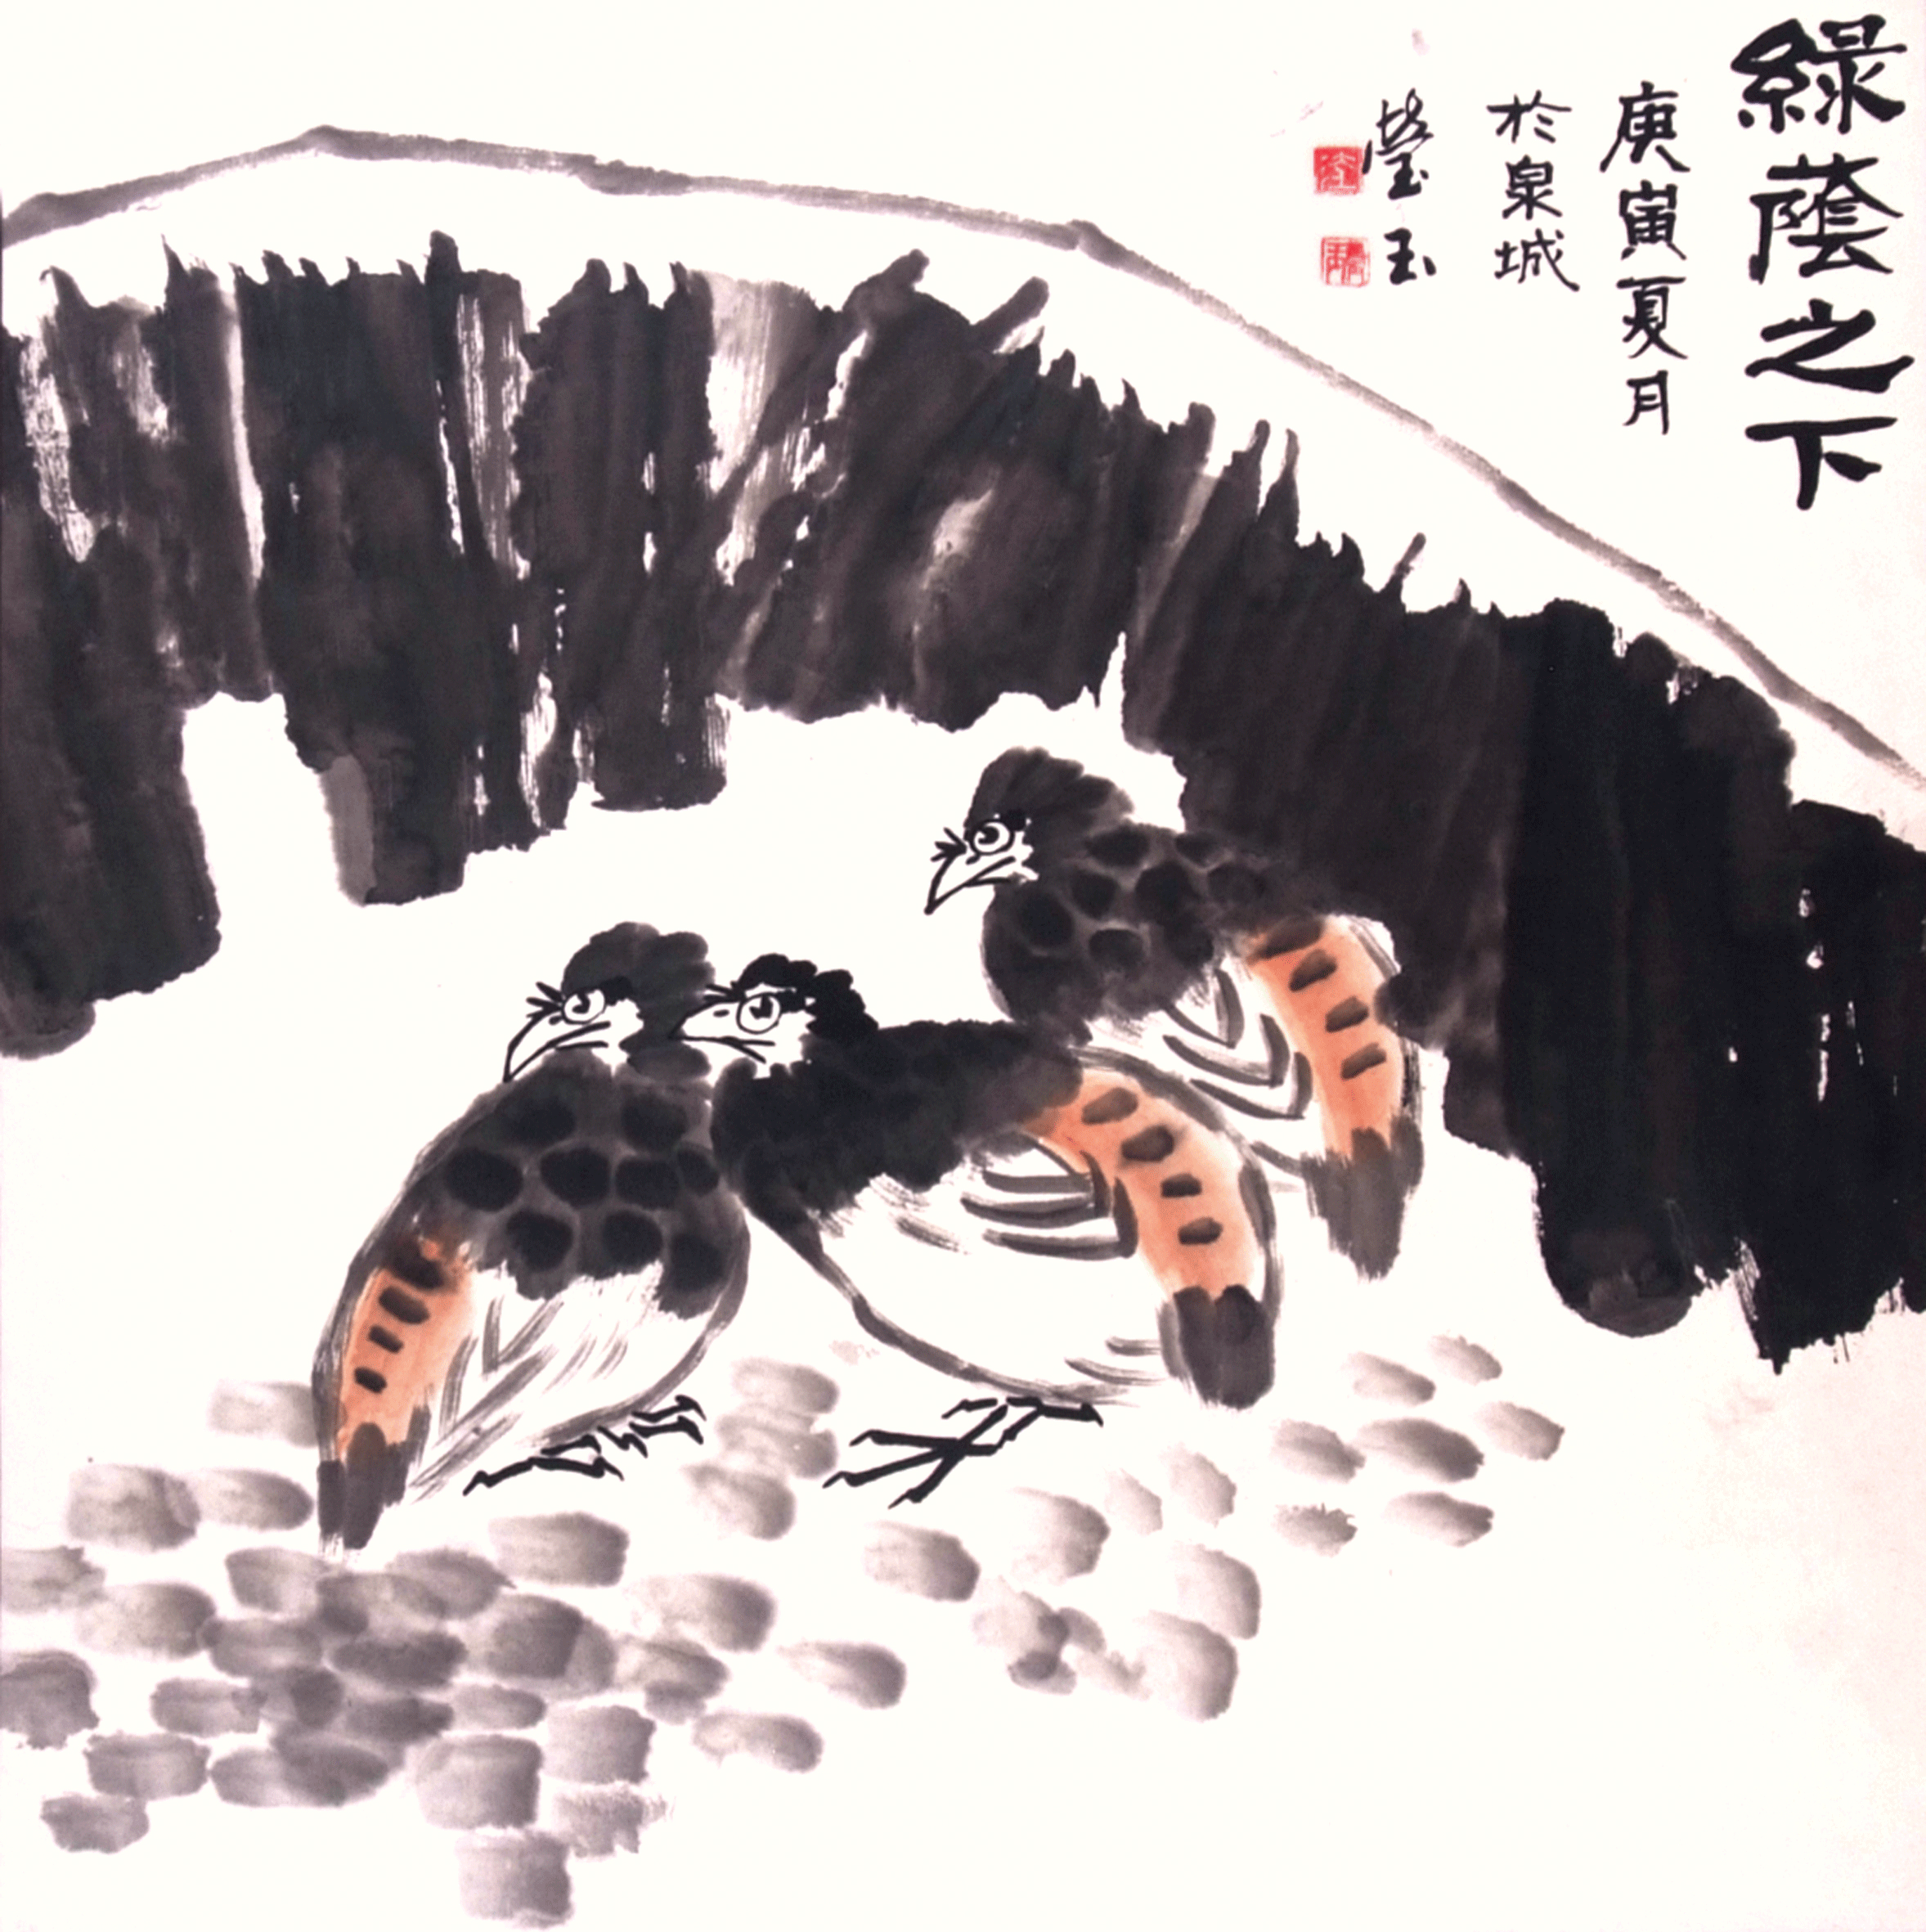 綠蔭之下
庚寅夏月
於泉城
瑩玉